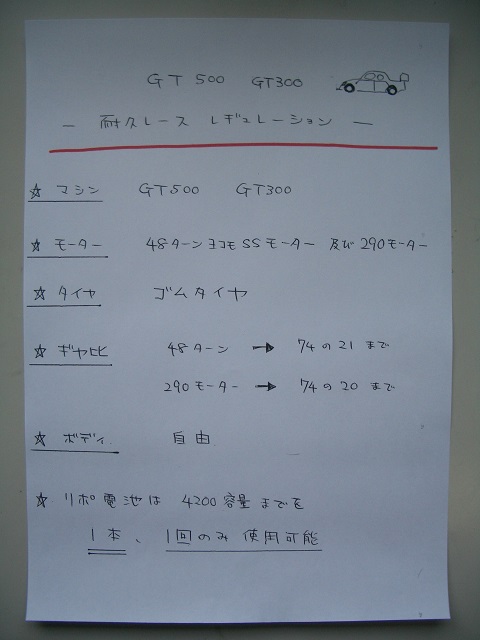 GT500 GT300
－ 耐久レース レギュレーション －
☆ マシン GT500 GT300
☆ モーター 48ターンヨコモSSモーター 及び290モーター
☆ タイヤ ゴムタイヤ
☆ ギヤ比 48ターン → 74の21まで
290モーター → 74の20まで
☆ ボディ 自由
☆ リポ電池は 4200容量までを
1本、1回のみ使用可能